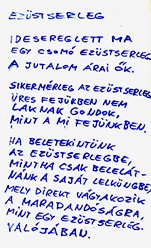 EZÜSTSERLEG
IDESEREGLETT MA
EGY CSOMÓ EZÜSTSERLEG
A JUTALOM ÁRAI ŐK.
SIKERMÉRLEG AZ EZÜSTSERLEG
ÜRES FEJÜKBEN NEM
LAKNAK GONDOK,
MINT A MI FEJÜNKBEN.
HA BELETEKINTÜNK
AZ EZÜSTSERLEGBE,
MINTHA CSAK BELELÁT-
NÁNK A SAJÁT LELKÜNKBE,
MELY DIREKT VÁGYAKOZIK
A MARADANDÓSÁGRA,
MINT EGY EZÜSTSERLEG.
VALÓJÁBAN.